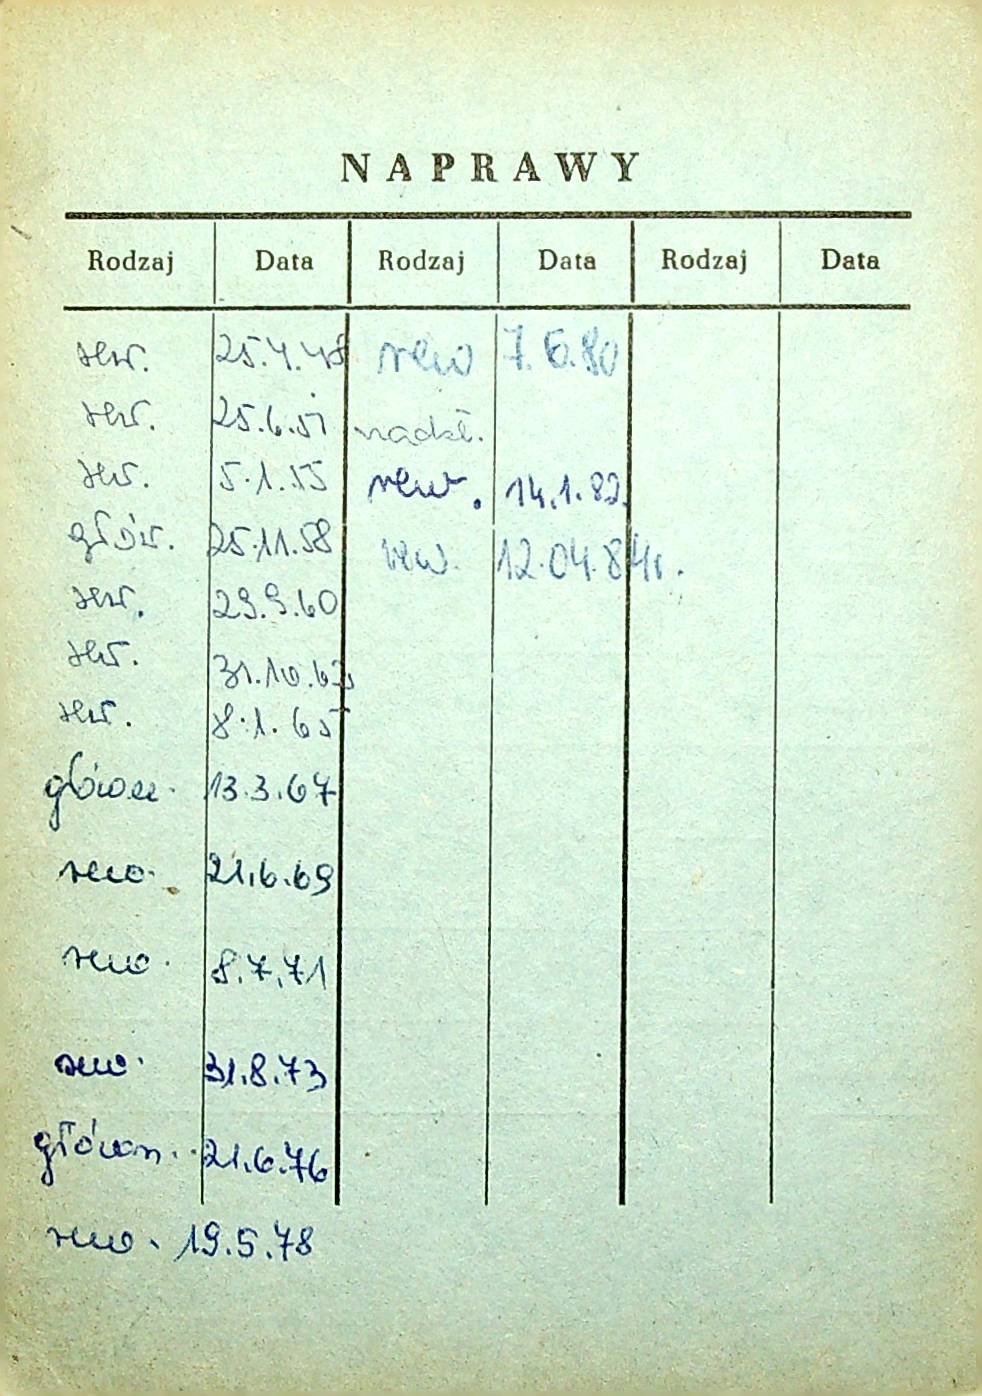 NAPRAWY
Rodzaj Data Rodzaj Data Rodzaj Data
rew. 25.4.48 rew 7.6.80
rew. 25.6.51 nadzl.
rew. 5.1.55 rew. 14.1.82.
głów. 25.11.58 rew. 12.04.84r.
rew. 29.9.60
rew. 31.10.62
rew. 8.1.65
główn. 13.3.67
rew. 21.6.69
rew. 8.7.71
rew. 31.8.73
główn. 21.6.76
rew. 19.5.78